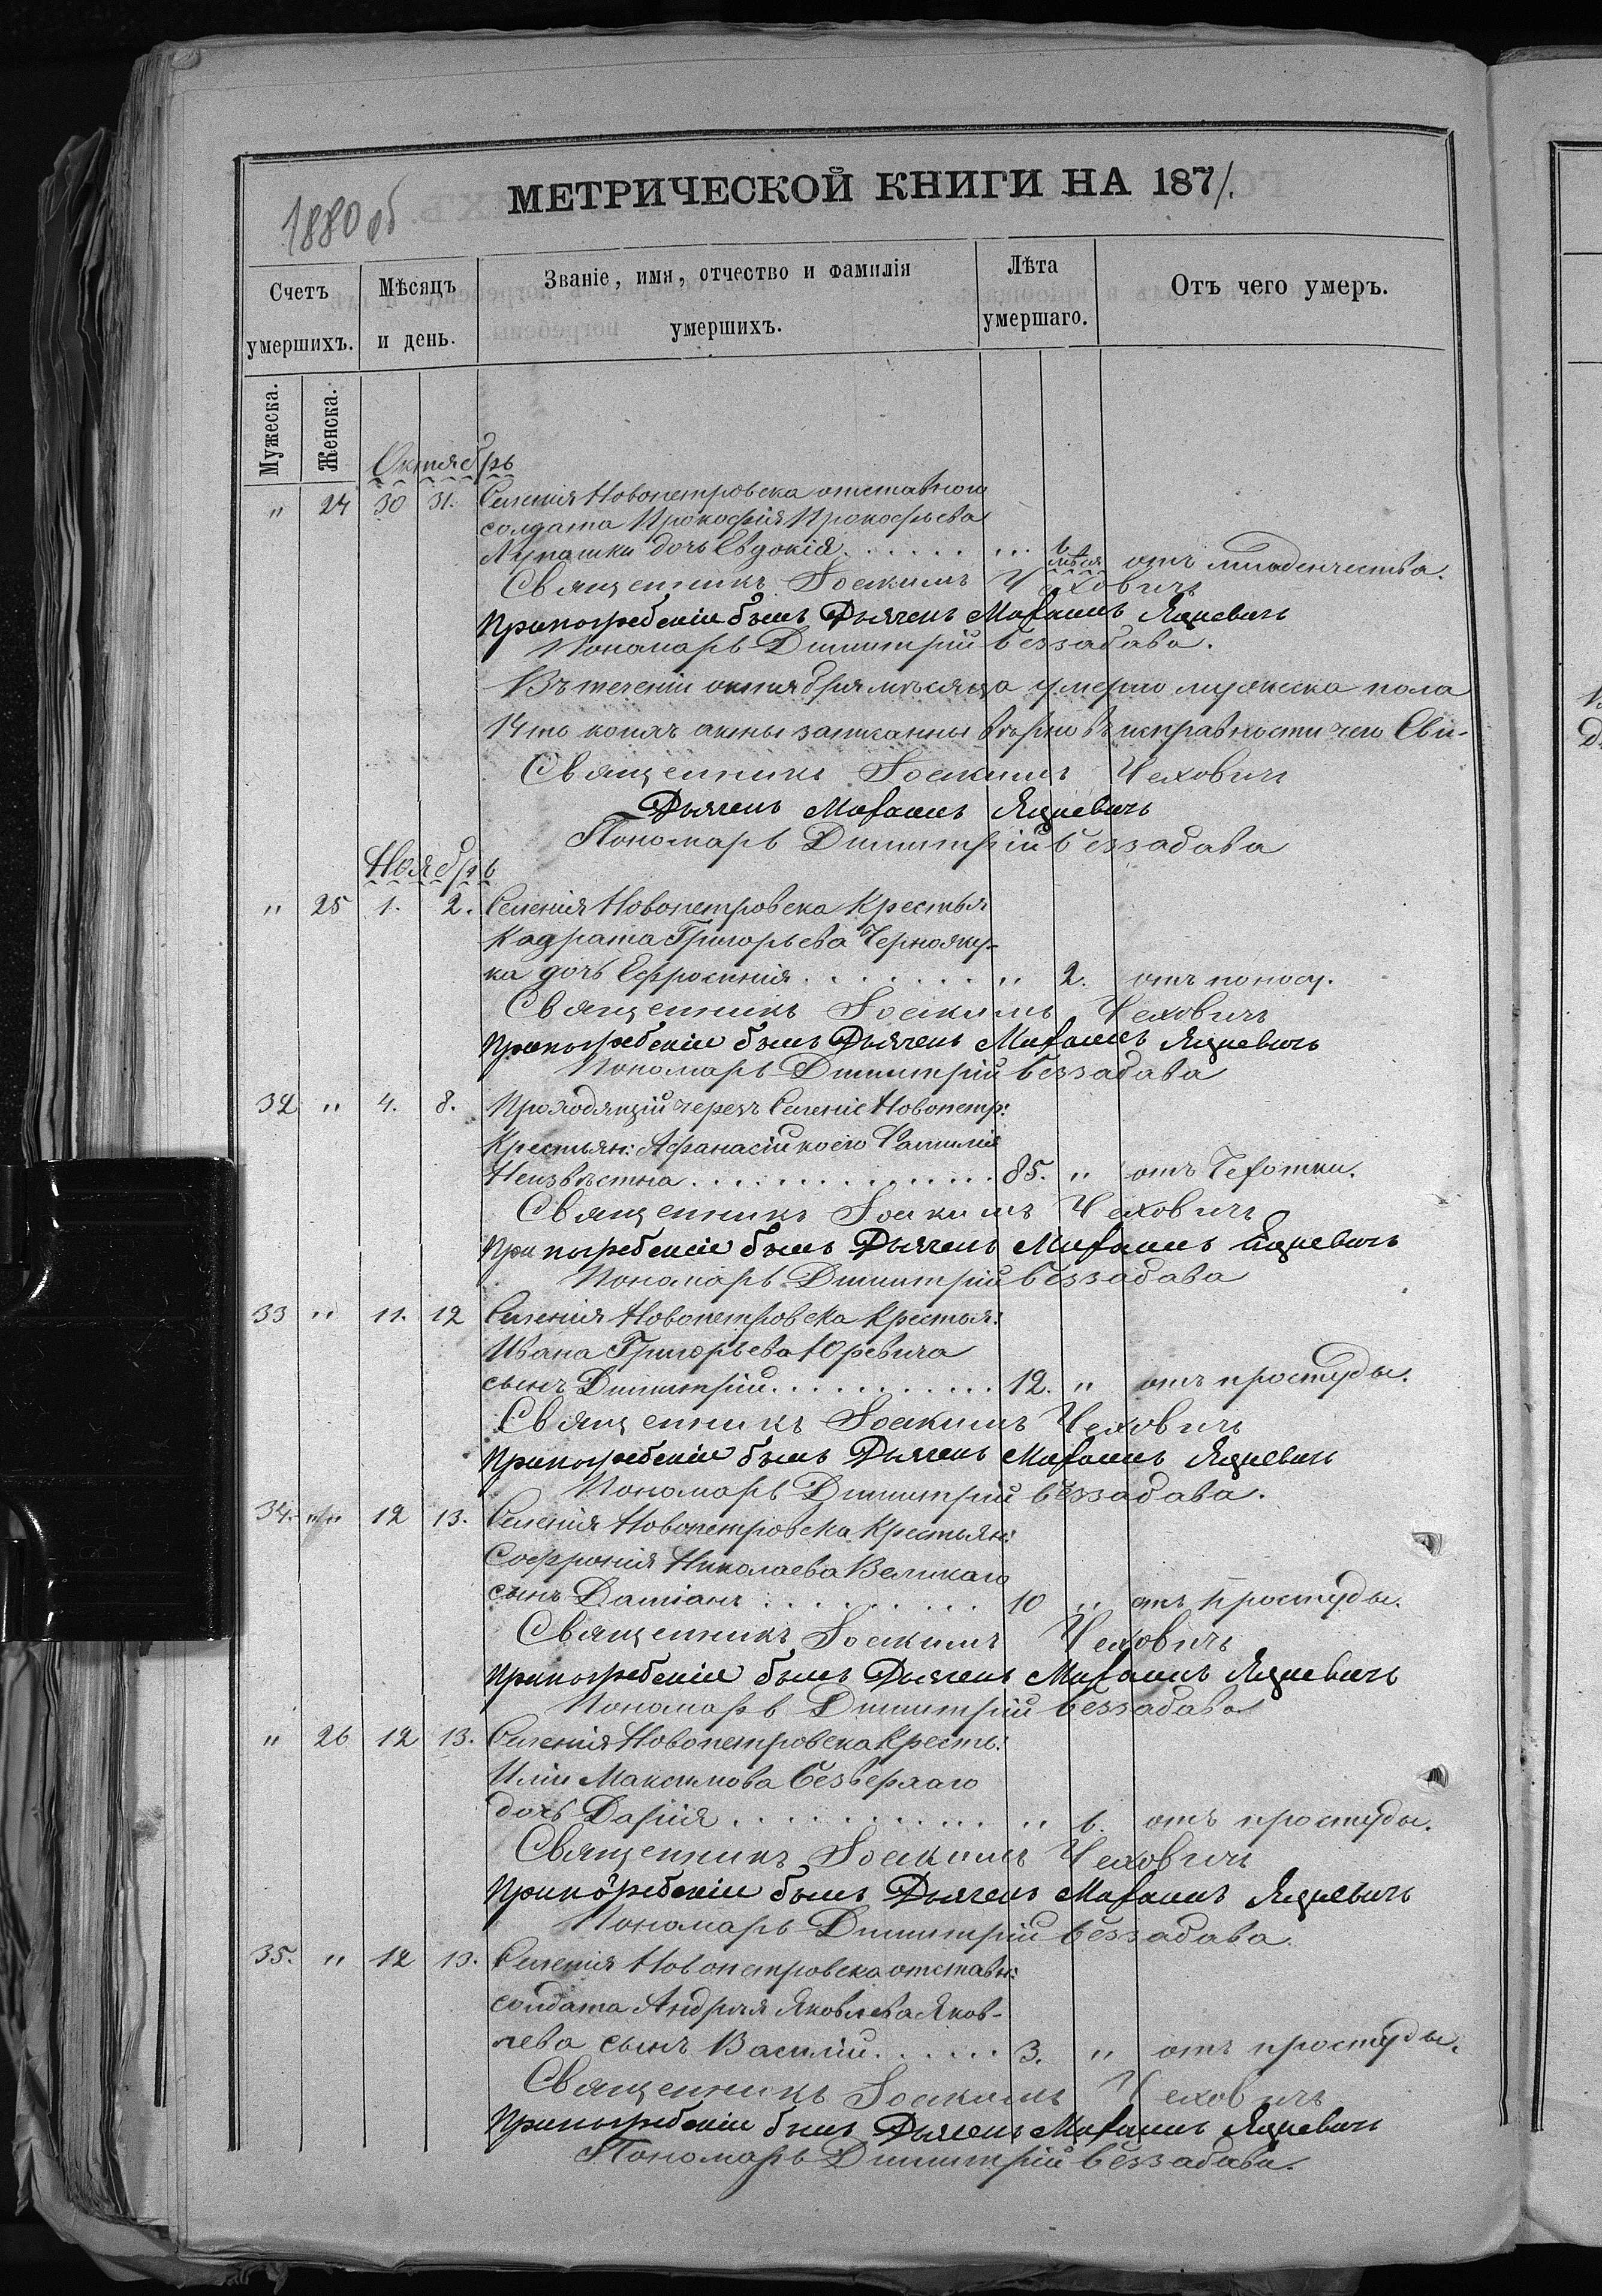 1880 об
МЕТРИЧЕСКОЙ КНИГИ НА 1871.
Счетъ умершихъ.
Мѣсяцъ и день.
Званіе, имя, отчество и фамилія умершихъ.
Лѣта умершаго.
Отъ чего умеръ.
Мужеска.
Женска.
Октябрь
" 24 30 31. Селенія Новопетровска отставного
солдата Прокофія Прокофьева
Лупашки дочь Евдокія . . . . . . ... 6 мѣсяц отъ младенчества.
Священникъ Іоакимъ Чеховичъ
При погребеніи былъ Дьячекъ Яцкевичъ
Пономарь Димитрій Беззабава.
Въ теченіи октября мѣсяца умерло мужеска пола
14ть коихъ акты записанны вѣрно въ исправности чего Сви-
Священникъ Іоакимъ Чеховичъ
Дьячекъ Яцкевичъ
Пономарь Димитрій Беззабава
Ноябрь
" 25 1. 2. Селенія Новопетровска Крестья
Кадрата Григорьева Чернояку-
ка дочь Ефросинія . . . . . . . " 2. отъ поносу.
Священникъ Іоакимъ Чеховичъ
При погребеніи былъ Дьячекъ Яцкевичъ
Пономарь Димитрій Беззабава
32 " 4. 8. Проходящій черезъ Селеніе Новопетр:
Крестьян: Афанасій коего Фамилія
Неизвѣстна . . . . . . . . . . 85. " отъ Чехотки.
Священникъ Іоакимъ Чеховичъ
При погребеніе былъ Дьячекъ Яцкевичъ
Пономарь Димитрій Беззабава
33 " 11. 12 Селенія Новопетровска Крестья:
Ивана Григорьева Юревича
сынъ Димитрій . . . . . . . . 12. " отъ простуды.
Священникъ Іоакимъ Чеховичъ
При погребеніи былъ Дьячекъ Яцкевичъ
Пономарь Димитрій Беззабава.
34. " 12 13. Селенія Новопетровска Крестьян:
Софронія Николаева Великаго
сынъ Даміанъ . . . . . . . . 10 " отъ простуды.
Священникъ Іоакимъ Чеховичъ
При погребеніе былъ Дьячекъ Яцкевичъ
Пономарь Димитрій Беззабава
" 26 12 13. Селенія Новопетровска Кресть:
Иліи Максимова Безверхаго
дочь Дарія . . . . . . . . . " 6. отъ простуды.
Священникъ Іоакимъ Чеховичъ
При погребеніи былъ Дьячекъ Яцкевичъ
Пономарь Димитрій Беззабава.
35. " 12 13. Селенія Новопетровска отставн:
солдата Андрея Яковлева Яков-
лева сынъ Василій . . . . . 3. " отъ простуды.
Священникъ Іоакимъ Чеховичъ
При погребеніи былъ Дьячекъ Яцкевичъ
Пономарь Димитрій Беззабава.